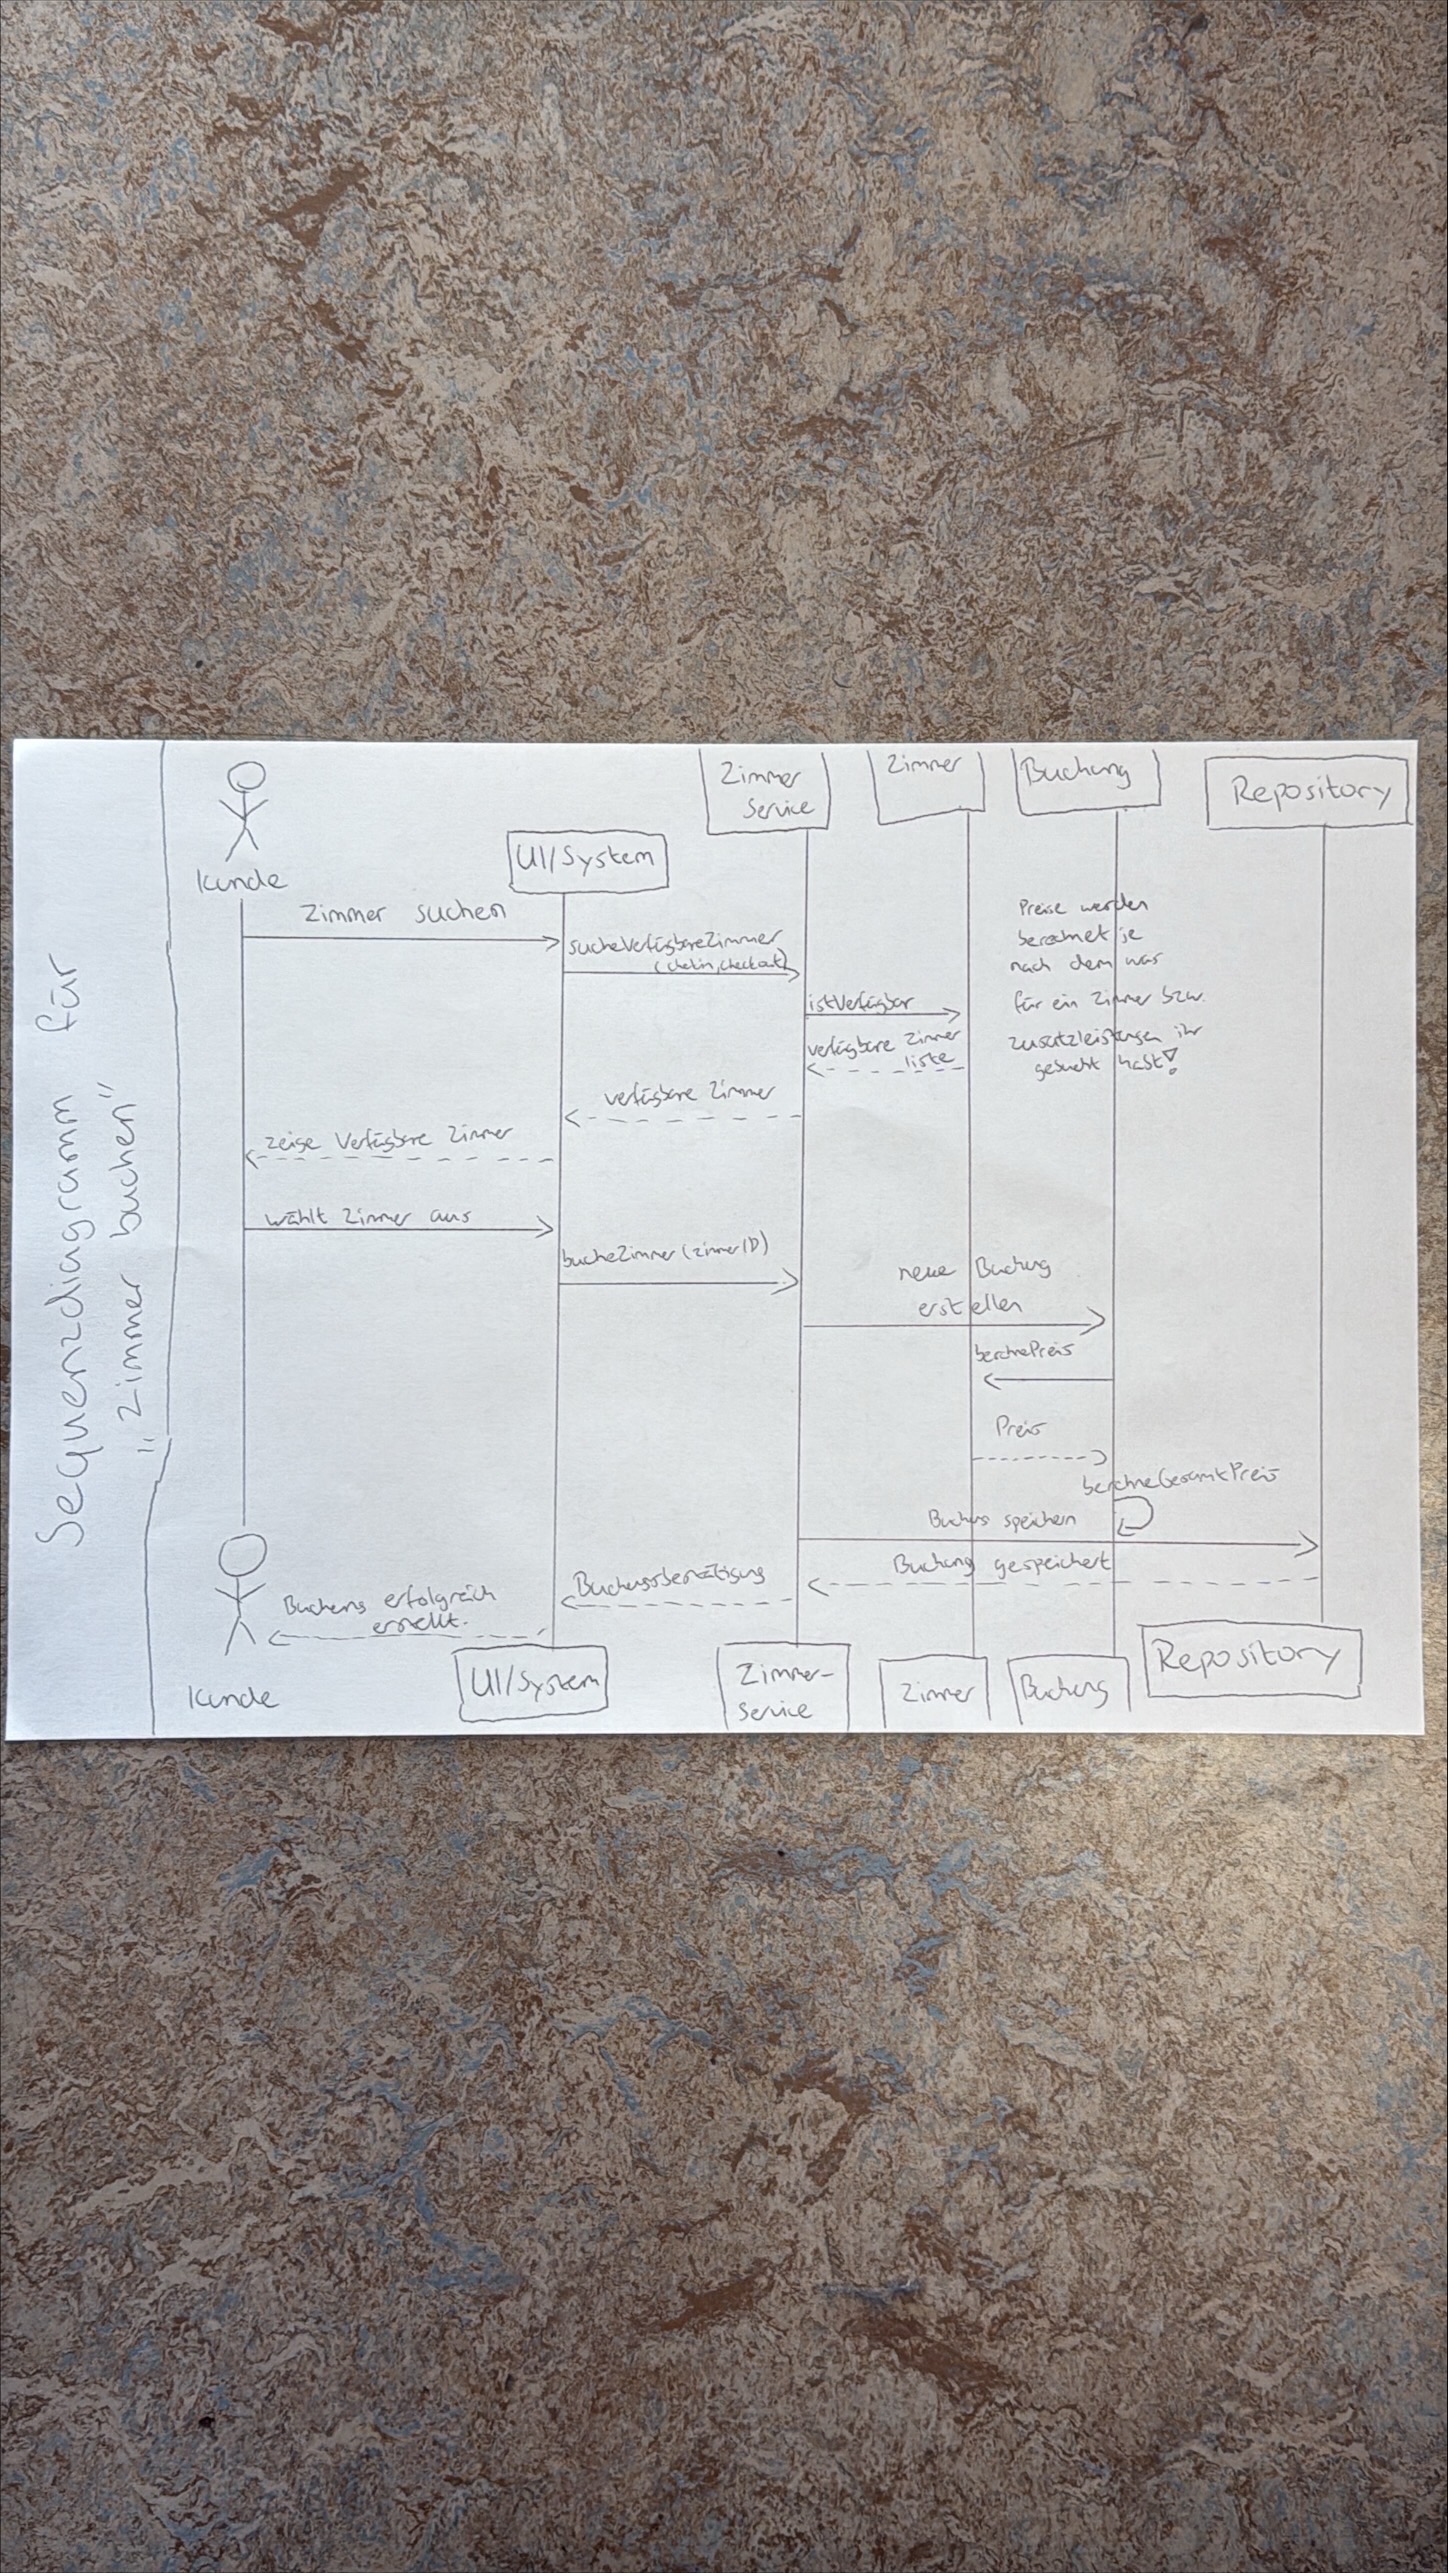 Sequenzdiagramm für
"Zimmer buchen"
Kunde
UI/System
Zimmer
Service
Zimmer
Buchung
Repository
Zimmer suchen
sucheVerfügbareZimmer
(checkin, checkout)
istVerfügbar
verfügbare Zimmer
liste
verfügbare Zimmer
zeige Verfügbare Zimmer
Preise werden
berechnet je
nach dem was
für ein Zimmer bzw.
zusatzleistungen ihr
gebucht habt!
wählt Zimmer aus
bucheZimmer (zimmerID)
neue Buchung
erstellen
berechnePreis
Preis
berechneGesamtPreis
Buchung speichern
Buchung gespeichert
Buchungsbestätigung
Buchung erfolgreich
erstellt.
Kunde
UI/System
Zimmer-
service
Zimmer
Buchung
Repository